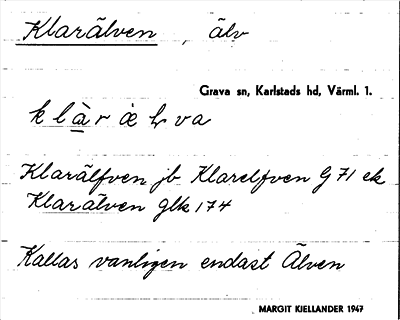 Klarälven, älv
Grava sn, Karlstads hd, Värml. 1.
Klarälfven jb Klarelfven G 71 ek
Klarälven glk 174
Kallas vanligen endast Älven
MARGIT KJELLANDER 1947